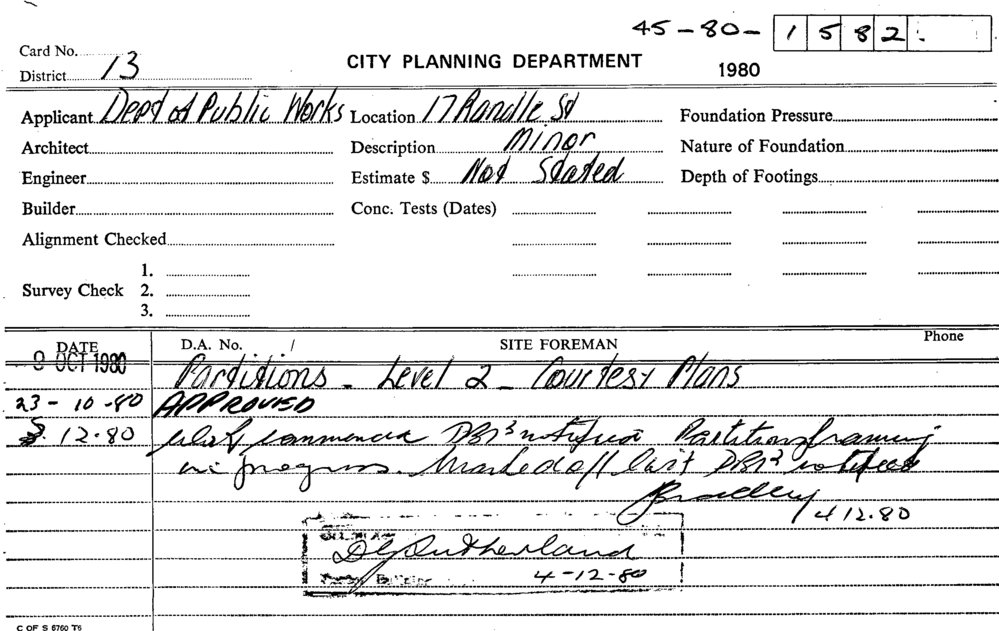 45-80-1582.
Card No.
District 13
CITY PLANNING DEPARTMENT
1980
Applicant Dept of Public Works Location 17 Randle St Foundation Pressure
Architect Description Minor Nature of Foundation
Engineer Estimate $ Not Stated Depth of Footings
Builder Conc. Tests (Dates)
Alignment Checked
1.
Survey Check 2.
3.
DATE D.A. No. / SITE FOREMAN Phone
9 OCT 1980 Partitions - Level 2 - Courtesy Plans
23-10-80 APPROVED
3.12.80 Work commenced notified Partition framing
in progress. Marked off last notified
Bradley
4 12.80
Sutherland
4-12-80
C OF S 6760 T6